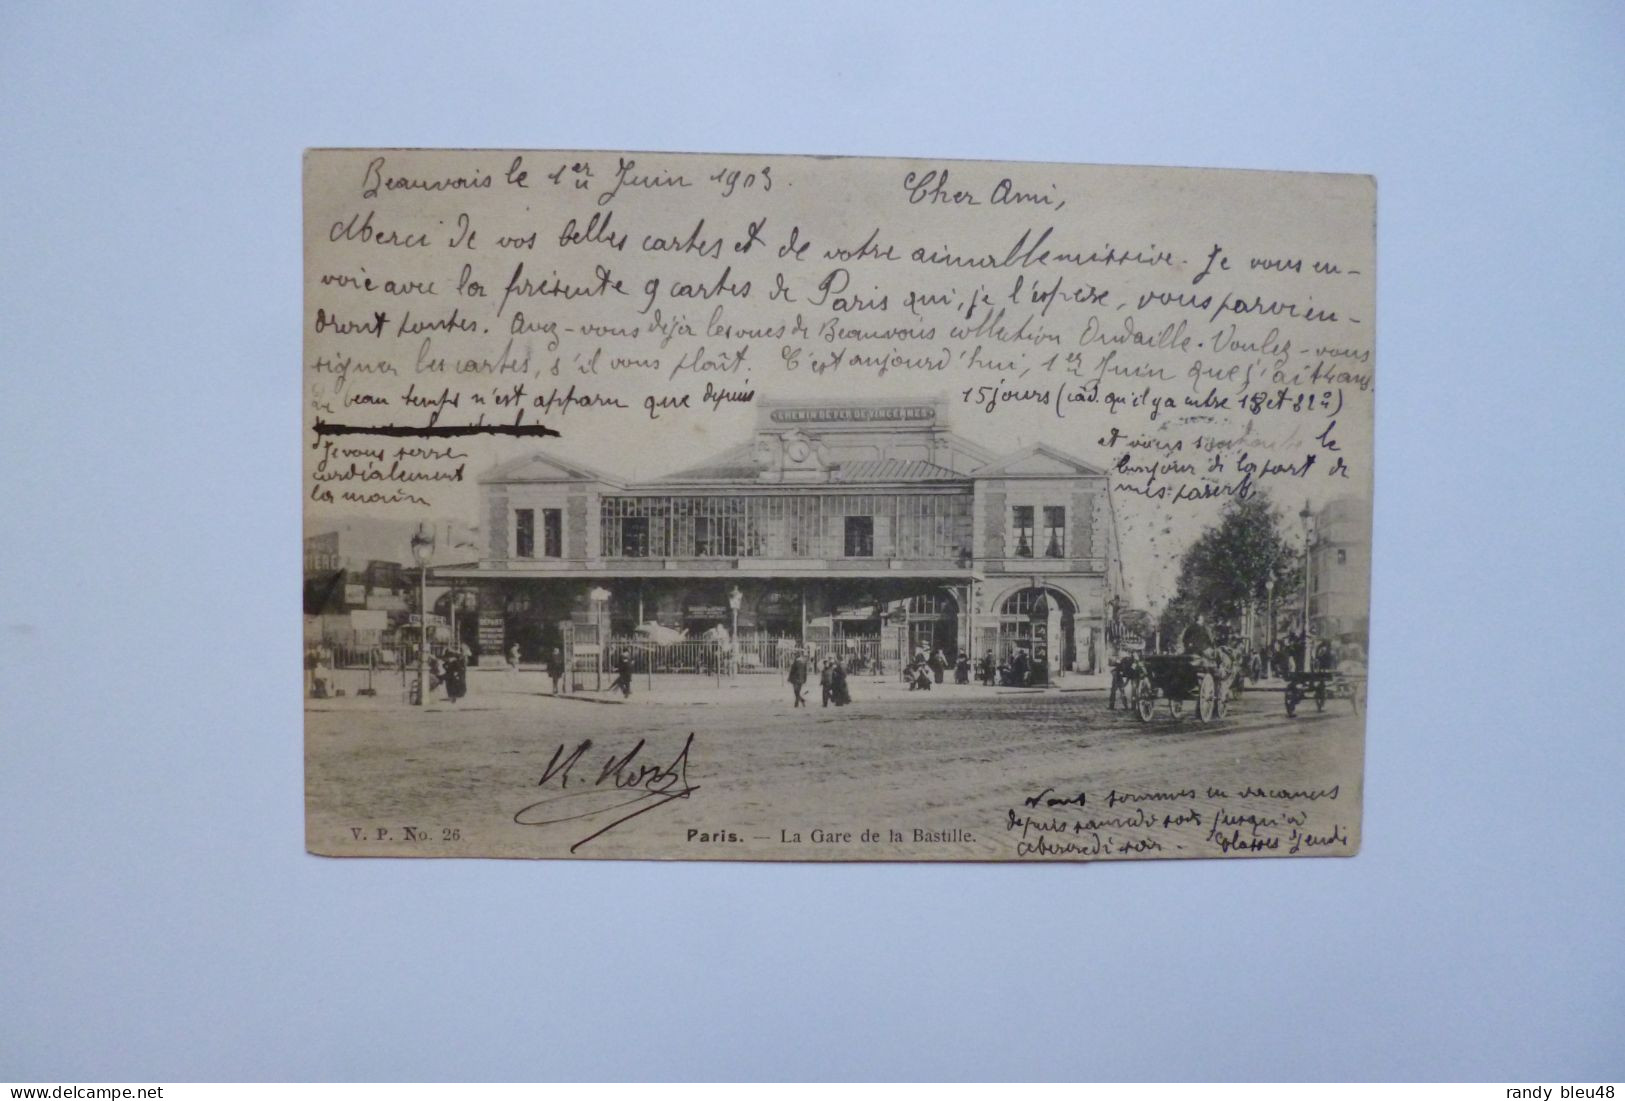 Beauvais le 1er Juin 1903. Cher Ami,
Merci de vos belles cartes et de votre aimable missive. Je vous en-
voie avec la présente 9 cartes de Paris qui, je l'espère, vous parvien-
dront toutes. Avez-vous déjà les vues de Beauvais collection Ondaille. Voulez-vous
signer les cartes, s'il vous plaît. C'est aujourd'hui, 1er Juin que j'ai
beau temps n'est apparu que depuis 15 jours (càd. qu'il y a entre 18 et
Je vous serre
cordialement
la main
et vous souhaite le
bonjour de la part de
mes parents
CHEMIN DE FER DE VINCENNES
DÉPART
K. Koch
Nous sommes en vacances
depuis samedi soir jusqu'à
mercredi soir. Classes Jeudi
V. P. No. 26
Paris. — La Gare de la Bastille.
delcampe.net
randy bleu48